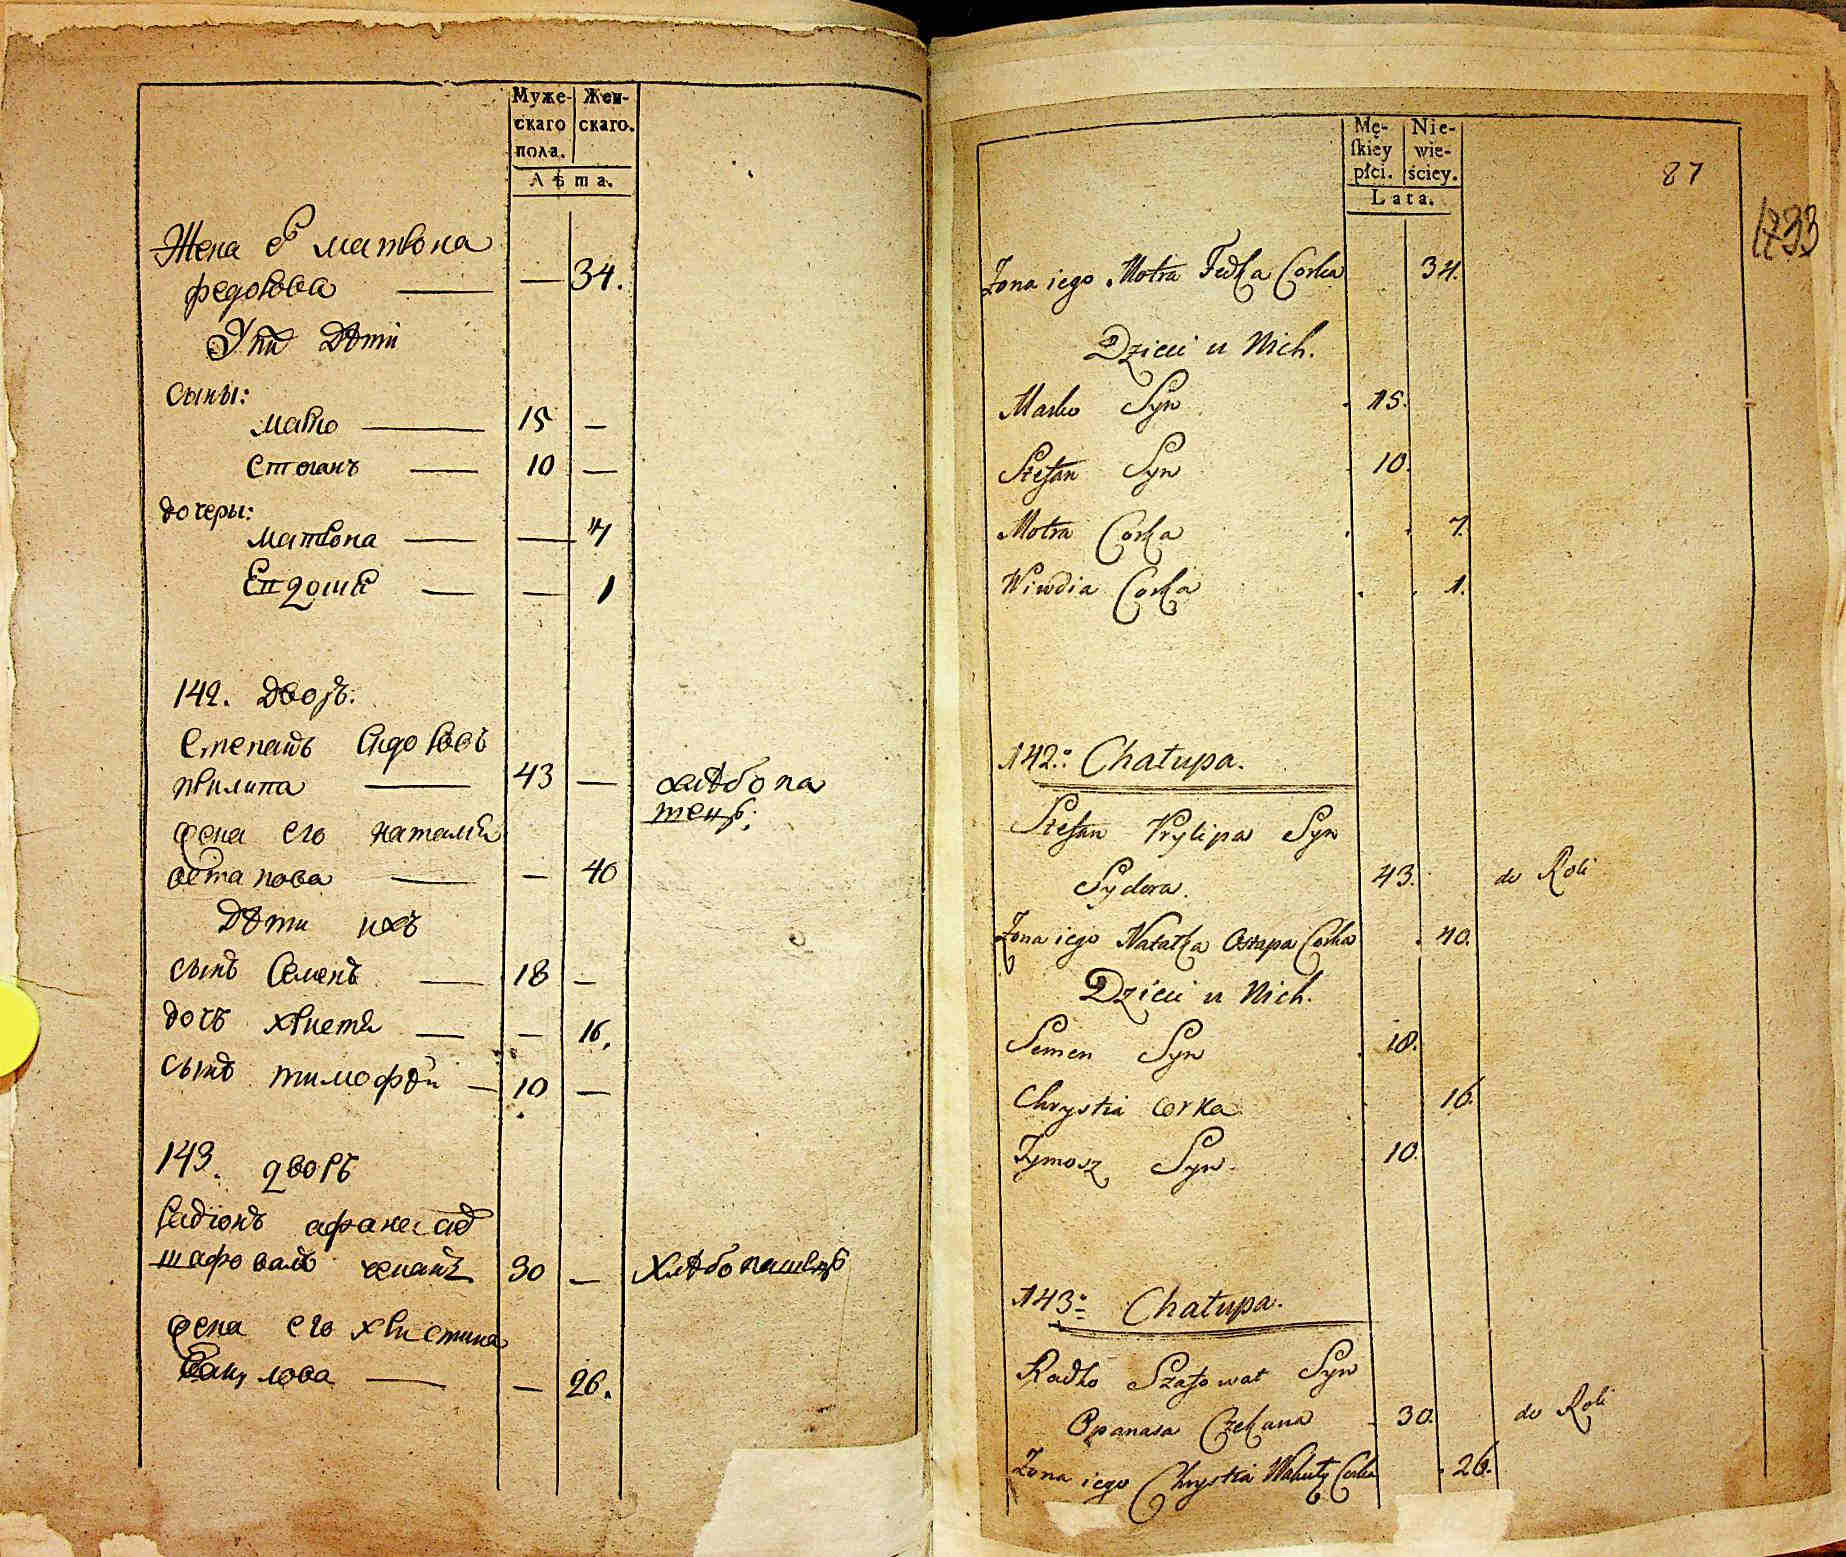 Муже-
скаго
пола.
Жен-
скаго.
Лѣта.
Жена Ег матвона
федорова — — 34.
У ни Дѣти
сыны:
марко — 15 —
степанъ — 10 —
дочеры:
матвона — — 7
— — 1
142. дворъ.
степанъ Сидоровъ
прилипа — 43 — хлѣбопа
шецъ;
жена его наталія
остапова — — 40
Дѣти ихъ
сынъ Семенъ — 18 —
дочъ христя — — 16.
сынъ тимофѣй — 10 —
143. дворъ
Радіонъ афанасіев
шафовалъ чеканъ 30 — Хлѣбопашецъ
жена его христина
— — 26.
Mę-
skiey
płci.
Nie-
wie-
ściey.
Lata.
87
Żona iego Motra Fedka Corka 34.
Dzieci u Nich.
Marko Syn 15.
Stefan Syn 10.
Motra Corka 7.
Wiwdia Corka 1.
142: Chałupa.
Stefan Prylipa Syn
Sydora. 43. do Roli
Żona iego Natałka Ostapa Corka 40.
Dzieci u Nich.
Semen Syn 18.
Chrystia Corka 16.
Tymosz Syn. 10.
143: Chałupa.
Radko Szafował Syn
Opanasa Czekana 30. do Roli
Żona iego Chrystia Corka 26.